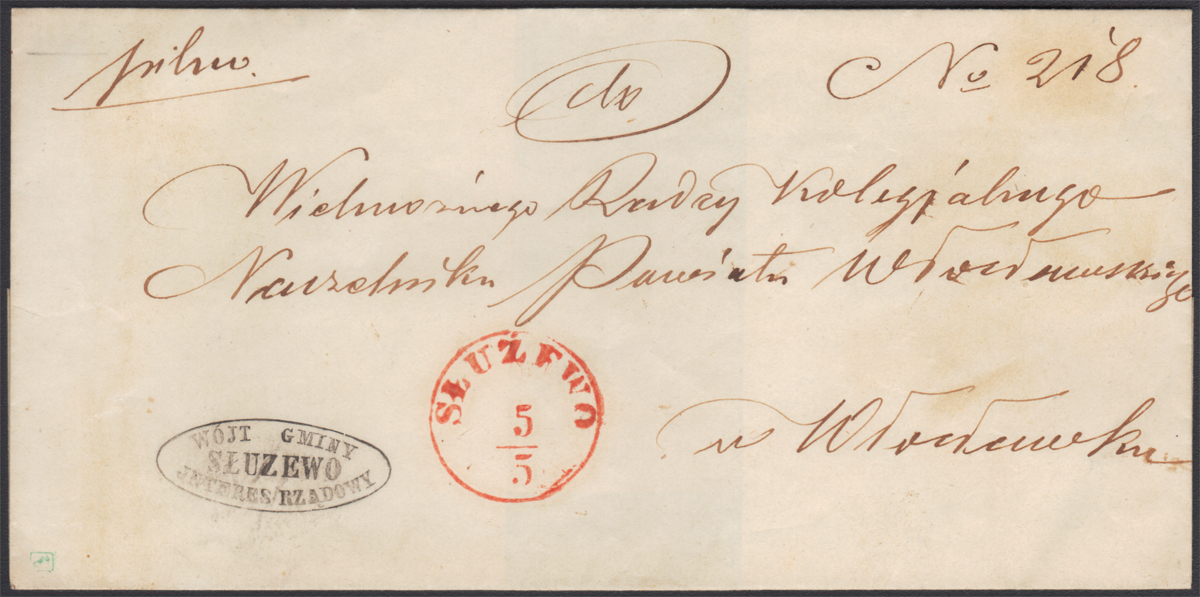 pilno.
do
No 218.
Wielmożnego Radzcy Kolegjalnego
Naczelnika Powiatu Włocławskiego
w Włocławku
SŁUŻEWO
5
5
WÓJT GMINY
SŁUZEWO
JNTERES RZĄDOWY